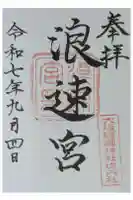 奉拝
浪速宮
令和七年九月四日